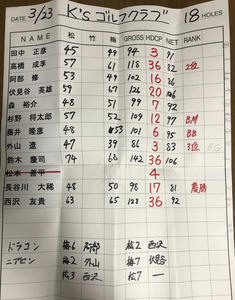 DATE 3/23 K'sゴルフクラブ 18 HOLES
NAME 松 竹 梅 GROSS HDCP NET RANK
田中 正彦 45 49 94 3 91
高橋 成享 57 61 118 36 82 2位
阿部 修 53 49 102 16 86
伏見谷 英雄 59 67 126 20 106
森 裕介 48 51 99 7 92
杉野 将太郎 57 52 109 12 97 BM
藤井 隆彦 48 53 101 6 95 BB
外山 遼 47 39 86 3 83 3位 BG
鈴木 慶司 74 68 142 36 106
松本 善平
長谷川 大稀 48 50 98 17 81 優勝
西沢 友貴 63 65 128 36 92
ドラコン 梅6 阿部 松2 西沢
ニアピン 梅2 外山 梅7 伏見谷
松3 西沢 松7 ―